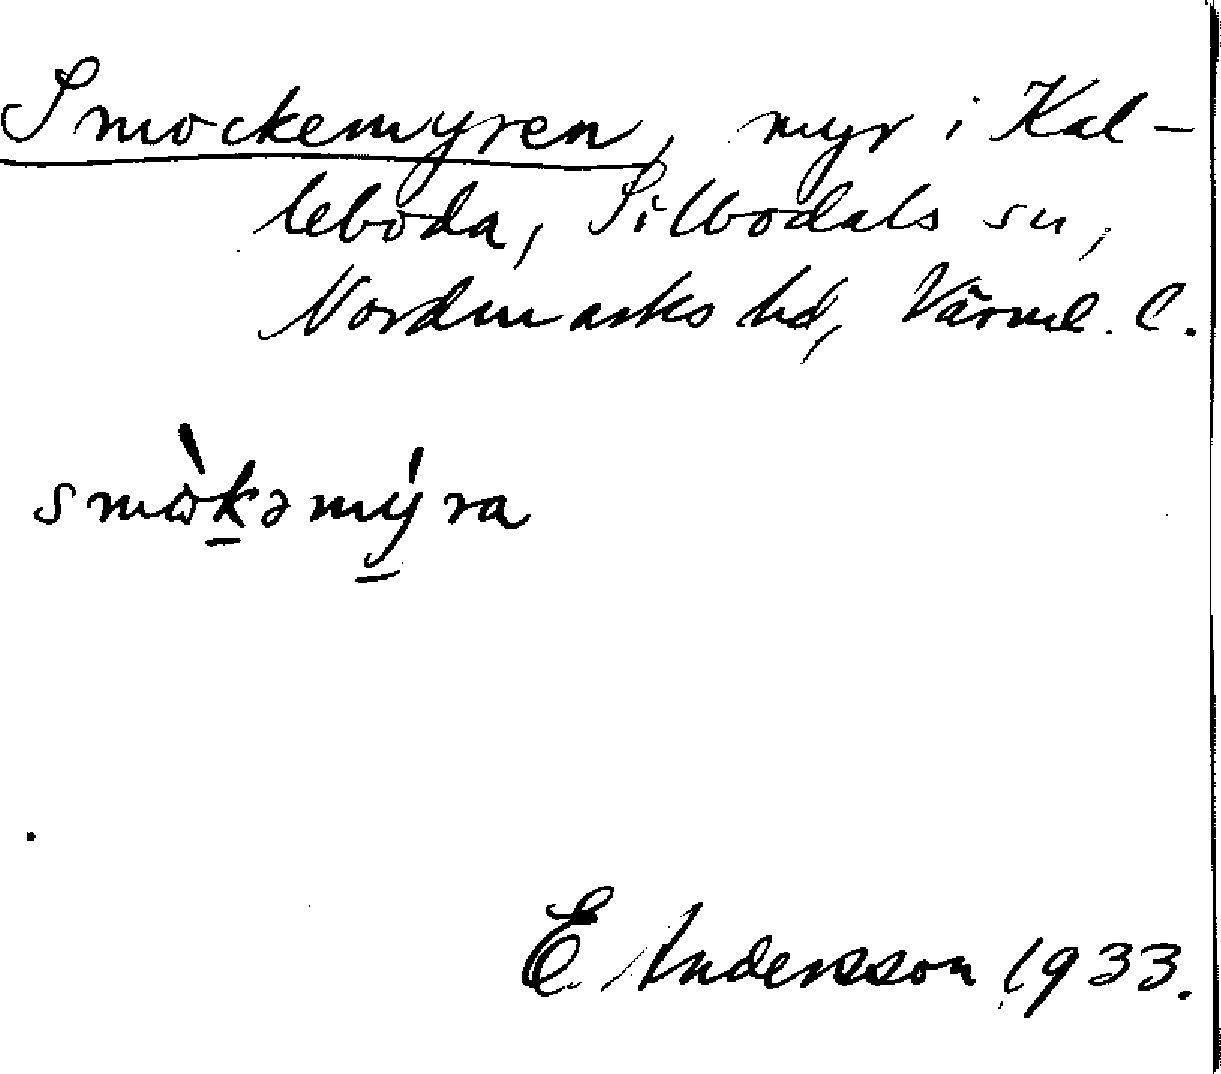 Smockemyren, myr i Kal-
leboda, Silbodals sn,
Nordmarks hd, Värml. l.
smὼkəmýra
E. Andersson 1933.